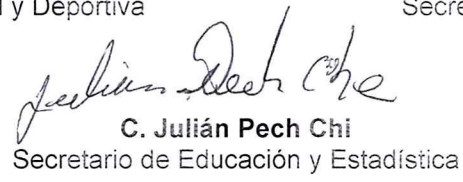 y Deportiva Secre
Julian Pech Che
C. Julián Pech Chi
Secretario de Educación y Estadística